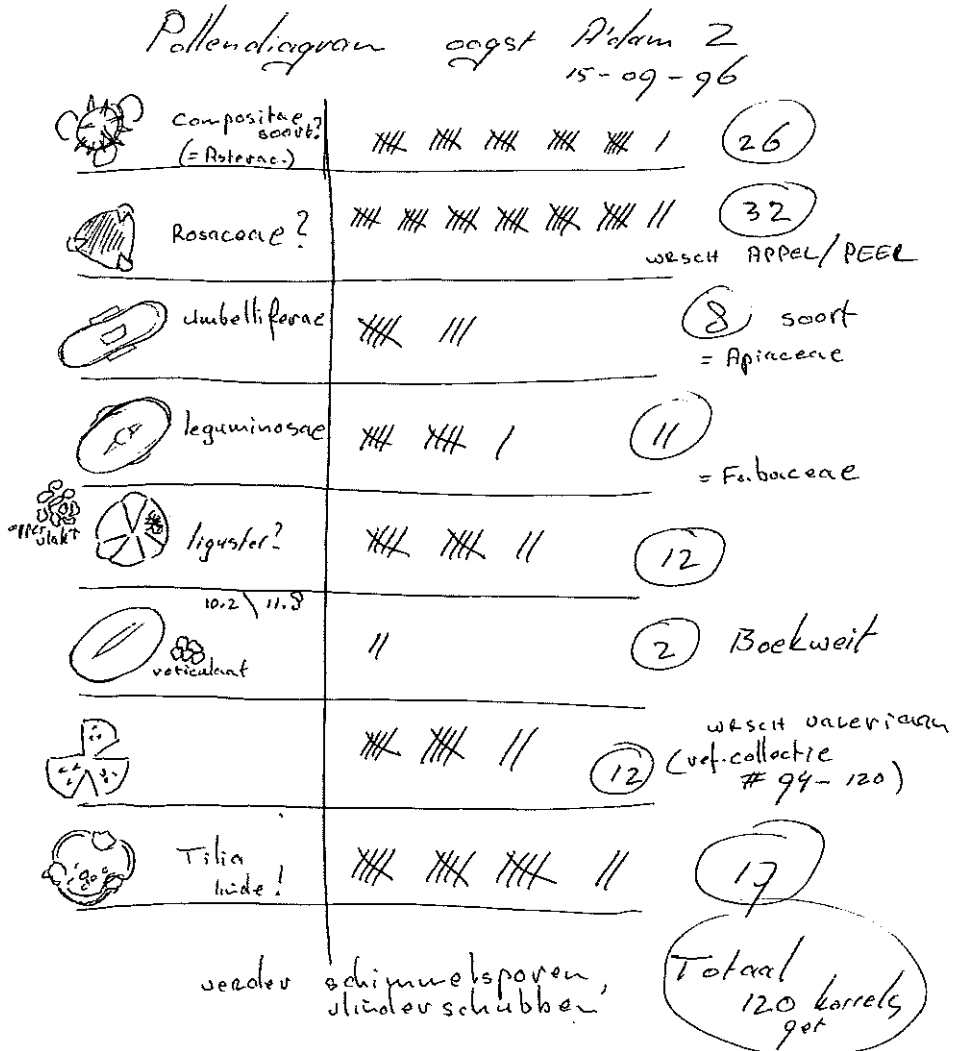 Pollendiagram oogst A'dam 2
15-09-96
Compositae soort?
(= Asterac.)
26
Rosaceae?
32
WRSCH APPEL/PEER
Umbelliferae
8 soort
= Apiaceae
leguminosae
11
= Fabaceae
oppervlakt
liguster?
12
10.2 \ 11.8
reticulaat
2 Boekweit
12
WRSCH valeriaan
(ref.collectie
# 94-120)
Tilia
linde!
17
verder schimmelsporen,
vlinderschubben,
Totaal
120 korrels
get